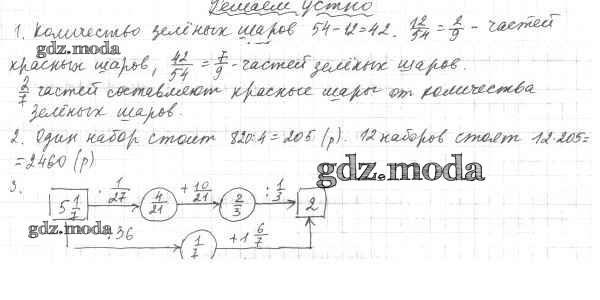 Решаем устно
1. Количество зелёных шаров 54-12=42. 12/54 = 2/9 - частей
gdz.moda
красных шаров, 42/54 = 7/9 - частей зелёных шаров.
2/7 частей составляют красные шары от количества
зелёных шаров.
2. Один набор стоит 820:4=205 (р). 12 наборов стоят 12·205=
=2460 (р)
gdz.moda
3.
5 1/7 · 1/27 4/21 + 10/21 2/3 : 1/3 2
gdz.moda
:36 1/7 +1 6/7